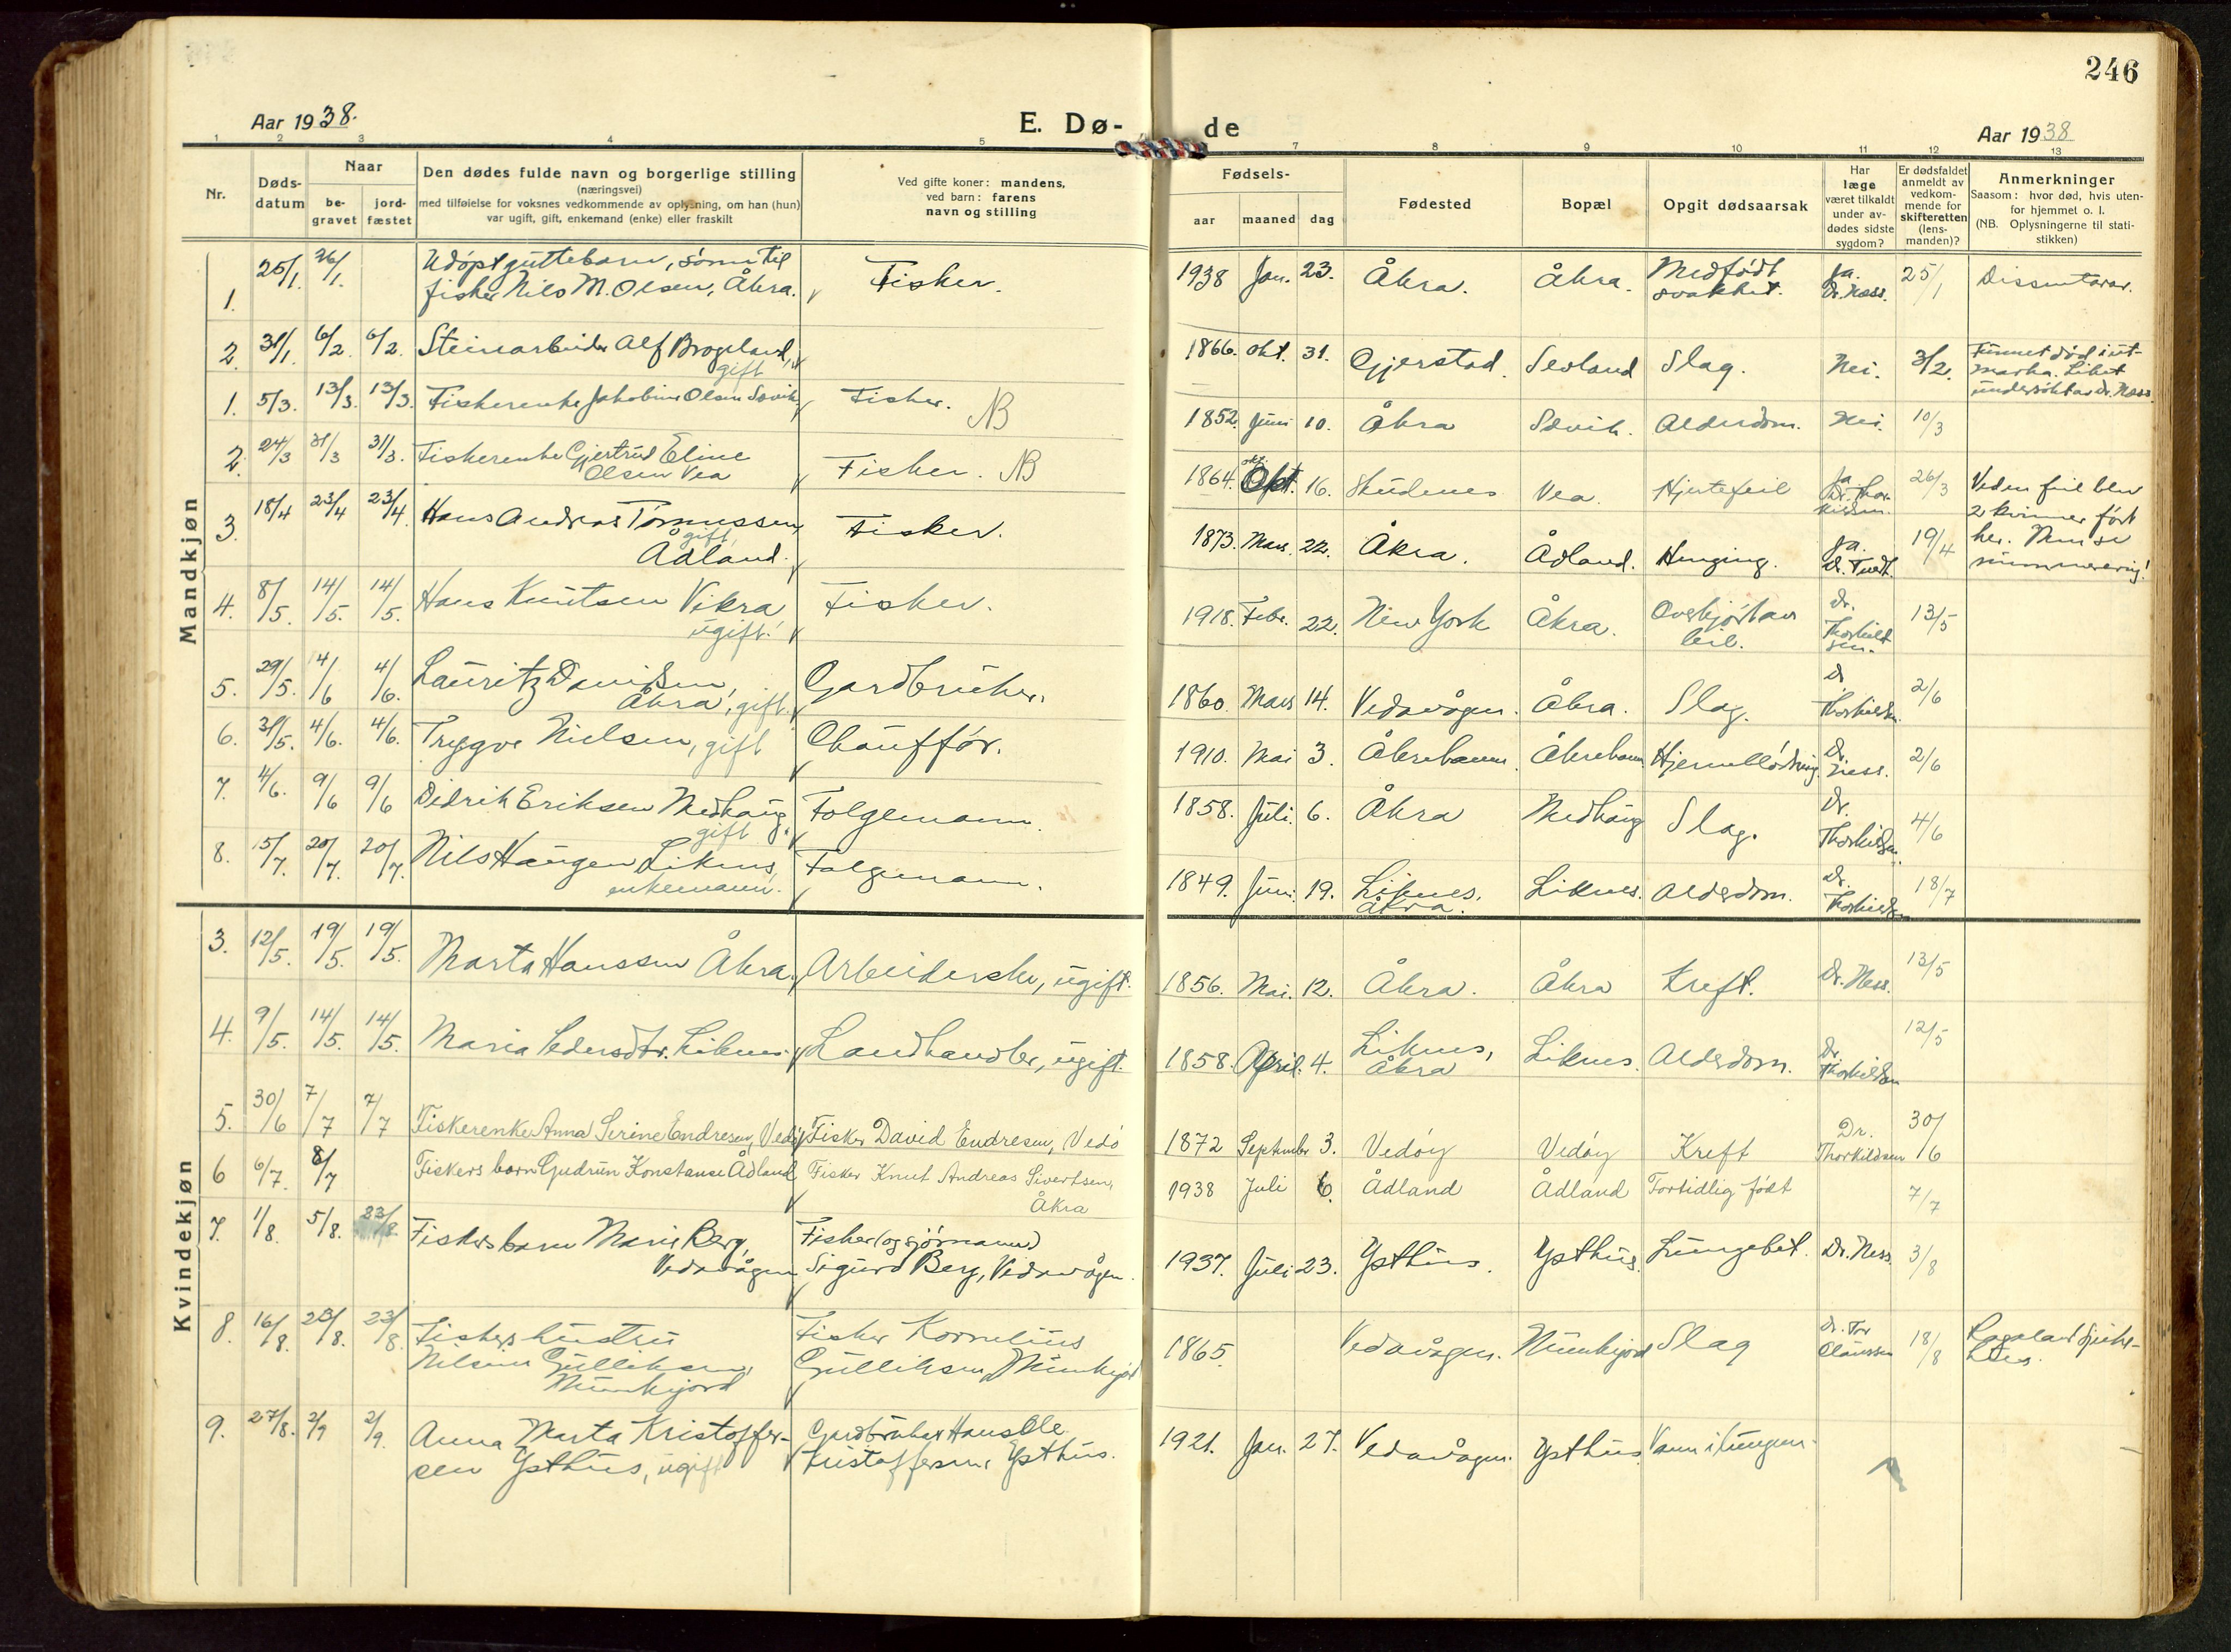 246
Aar 1938.
E. Dø-
de
Aar 1938
1 2 3 4 5 7 8 9 10 11 12 13
Nr.
Døds-
datum
Naar
be-
gravet
jord-
fæstet
Den dødes fulde navn og borgerlige stilling
(næringsvei)
med tilføielse for voksnes vedkommende av oplysning, om han (hun)
var ugift, gift, enkemand (enke) eller fraskilt
Ved gifte koner: mandens,
ved barn: farens
navn og stilling
Fødsels-
aar
maaned
dag
Fødested
Bopæl
Opgit dødsaarsak
Har
læge
været tilkaldt
under av-
dødes sidste
sygdom?
Er dødsfaldet
anmeldt av
vedkom-
mende for
skifteretten
(lens-
manden)?
Anmerkninger
Saasom: hvor død, hvis uten-
for hjemmet o. l.
(NB. Oplysningerne til stati-
stikken)
Mandkjøn
1. 25/1. 26/1. Udøpt guttebarn, sønn til
fisker Nils M. Olsen, Åkra. Fisker. 1938 Jan. 23. Åkra. Åkra. Medfødt
svakhet. Ja.
Dr. Næss. 25/1 Dissentarar.
2. 31/1. 6/2. 6/2. Steinarbeider Alf Brogeland,
gift 1866. Okt. 31. Gjerstad. Sevland Slag. Nei. 3/2. Funnet død i ut-
marka. Liket
undersøkt av Dr. Næss.
1. 5/3. 13/3. 13/3. Fiskerenke Jakobine Olsen Sævik Fisker. NB 1852. Juni 10. Åkra Sævik. Alderdom. Nei. 10/3
2. 24/3 31/3 31/3. Fiskerenke Gjertrud Eline
Olsen Vea Fisker. NB 1864. Okt. 16. Skudenes Vea. Hjertefeil Ja
Dr. Thor-
kildsen. 26/3 Ved en feil blev
2 kvinner ført
her. Munse
nummerering!
3. 18/4 23/4 23/4. Hans Andreas Tomassen,
gift,
Ådland. Fisker. 1873. Mars. 22. Åkra. Ådland. Henging. Ja.
Dr. Tvedt. 19/4
4. 8/5. 14/5. 14/5. Hans Knutsen Vikra
ugift. Fisker. 1918. Febr. 22. New York Åkra. Overkjørt av
bil. Dr.
Thorkild
sen. 13/5
5. 29/5. 4/6 4/6. Lauritz Danielsen,
Åkra, gift. Gardbruker. 1860. Mars 14. Vedavågen. Åkra. Slag. Dr
Thorkildsen. 2/6
6. 31/5. 4/6. 4/6. Trygve Nielsen, gift Chauffør. 1910. Mai 3. Åkrehamn. Åkrehamn Hjerneblødning Dr.
Ness. 2/6
7. 4/6. 9/6 9/6 Didrik Eriksen Medhaug
gift. Folgemann. 1858. Juli. 6. Åkra Medhaug Slag. Dr.
Thorkildsen. 4/6
8. 15/7. 20/7. 20/7. Nils Haugen Liknes,
enkemann. Folgemann. 1849. Juni. 19. Liknes.
Åkra. Liknes. Alderdom. Dr.
Thorkildsen 18/7
Kvindekjøn
3. 12/5. 19/5. 19/5. Marta Hanssen Åkra. Arbeiderske, ugift. 1856. Mai. 12. Åkra. Åkra Kreft. Dr. Ness. 13/5
4. 9/5. 14/5. 14/5. Maria Pedersdtr. Liknes. Landhandler, ugift. 1858. April. 4. Liknes,
Åkra Liknes. Alderdom. Dr.
Thorkildsen 12/5
5. 30/6 7/7 7/7 Fiskerenke Anna Serine Endresen, Vedøy Fisker David Endresen, Vedø 1872 September 3. Vedøy Vedøy Kreft Dr.
Thorkildsen 30/6
6 6/7. 8/7 Fiskers barn Gudrun Konstanse Ådland Fisker Knut Andreas Sivertsen,
Åkra 1938 Juli 6. Ådland Ådland Fortidlig født 7/7
7. 1/8. 5/8. 23/8. Fiskers barn Marie Berg,
Vedavågen Fisker (og sjømann)
Sigurd Berg, Vedavågen. 1937. Juli 23. Ysthus. Ysthus. Lungebet. Dr. Ness. 3/8
8. 16/8. 23/8. 23/8. Fiskers hustru
Nilsine Gulliksen,
Munkejord Fisker Kornelius
Gulliksen, Munkejord 1865. Vedavågen. Munkejord Slag Dr. Tor
Claussen 18/8 Rogaland sjuke-
hus.
9. 27/8. 2/9 2/9. Anna Marta Kristoffer-
sen Ysthus, ugift Gardbruker Hans Ole
Kristoffersen, Ysthus. 1921. Jan. 27. Vedavågen. Ysthus. Vann i lungene.